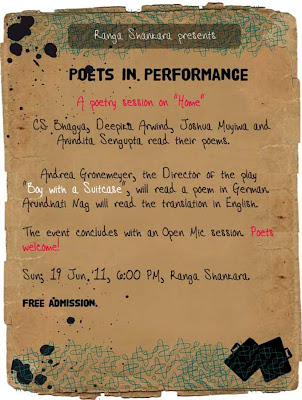 Ranga Shankara presents
POETS IN PERFORMANCE
A poetry session on "Home"
CS Bhagya, Deepika Arwind, Joshua Muyiwa and
Anindita Sengupta read their poems.
Andrea Gronemeyer, the Director of the play
"Boy with a Suitcase", will read a poem in German.
Arundhati Nag will read the translation in English.
The event concludes with an Open Mic session. Poets
welcome!
Sun, 19 Jun '11, 6:00 PM, Ranga Shankara.
FREE ADMISSION.